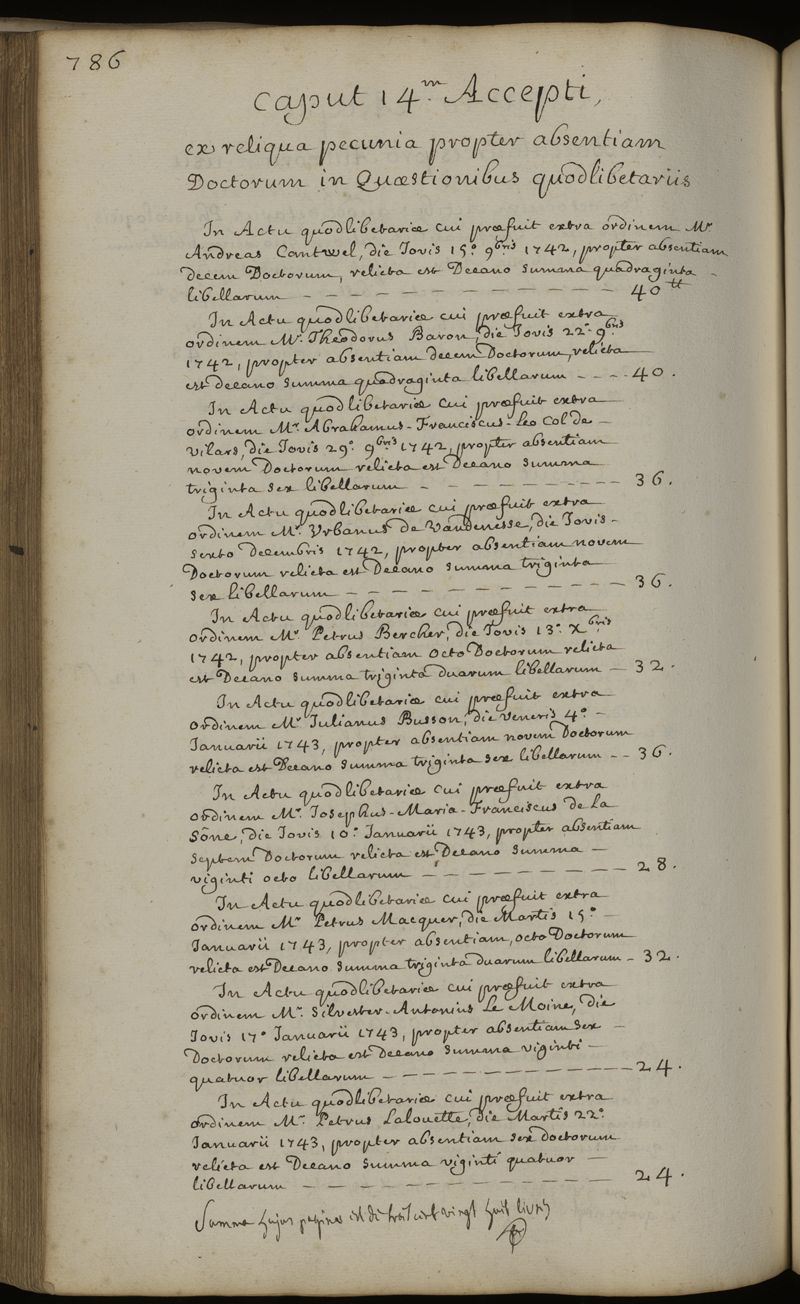 786
Caput 14.m Accepti,
ex reliqua pecunia propter absentiam
Doctorum in Quæstionibus quodlibetariis
In Actu quodlibetariæ cui præfuit extra ordinem Mr
Andreas Cantwel, die Jovis 15.º 9bris 1742, propter absentiam
decem Doctorum, relicta est Decano Summa quadraginta -
libellarum - - - - - - - - - - - 40 tt
In Actu quodlibetariæ cui præfuit extra
ordinem Mr. Theodorus Baron, die Jovis 22.º 9bris
1742, propter absentiam decem Doctorum, relicta
est Decano Summa quadraginta libellarum - - - - 40.
In Actu quodlibetariæ cui præfuit extra
ordinem Mr. Abrahamus-Franciscus-Leo Col de -
Vilars, die Jovis 29.º 9bris 1742, propter absentiam
novem Doctorum relicta est Decano Summa
triginta Sex libellarum - - - - - - - - - 36.
In Actu quodlibetariæ cui præfuit extra
ordinem Mr. Urbanus de Vandenesse, die Jovis -
Sexto Decembris 1742, propter absentiam novem
Doctorum relicta est Decano Summa triginta
Sex libellarum - - - - - - - - - - - 36.
In Actu quodlibetariæ cui præfuit extra
ordinem Mr. Petrus Bercher, die Jovis 13.º Xbris
1742, propter absentiam octo Doctorum relicta
est Decano Summa triginta duarum libellarum - 32.
In Actu quodlibetariæ cui præfuit extra
ordinem Mr. Julianus Busson, die Veneris 4.º -
Januarii 1743, propter absentiam novem Doctorum
relicta est Decano Summa triginta Sex libellarum - - 36.
In Actu quodlibetariæ cui præfuit extra
ordinem Mr. Josephus-Maria-Franciscus de La
Sône, die Jovis 10.º Januarii 1743, propter absentiam
Septem Doctorum relicta est Decano Summa -
viginti octo libellarum - - - - - - - - 28.
In Actu quodlibetariæ cui præfuit extra
ordinem Mr Petrus Macquer, die Martis 15.º -
Januarii 1743, propter absentiam, octo Doctorum
relicta est Decano Summa triginta duarum libellarum - 32.
In Actu quodlibetariæ cui præfuit extra
ordinem Mr. Silvester-Antonius Le Moine, die
Jovis 17.º Januarii 1743, propter absentiam Sex -
Doctorum relicta est Decano Summa viginti -
quatuor libellarum - - - - - - - - - - 24.
In Actu quodlibetariæ cui præfuit extra
ordinem Mr. Petrus Lalouette, die Martis 22.º
Januarii 1743, propter absentiam Sex doctorum
relicta est Decano Summa viginti quatuor -
libellarum - - - - - - - - - - - - 24.
Summa hujus paginæ est de trois cent vingt huit livres